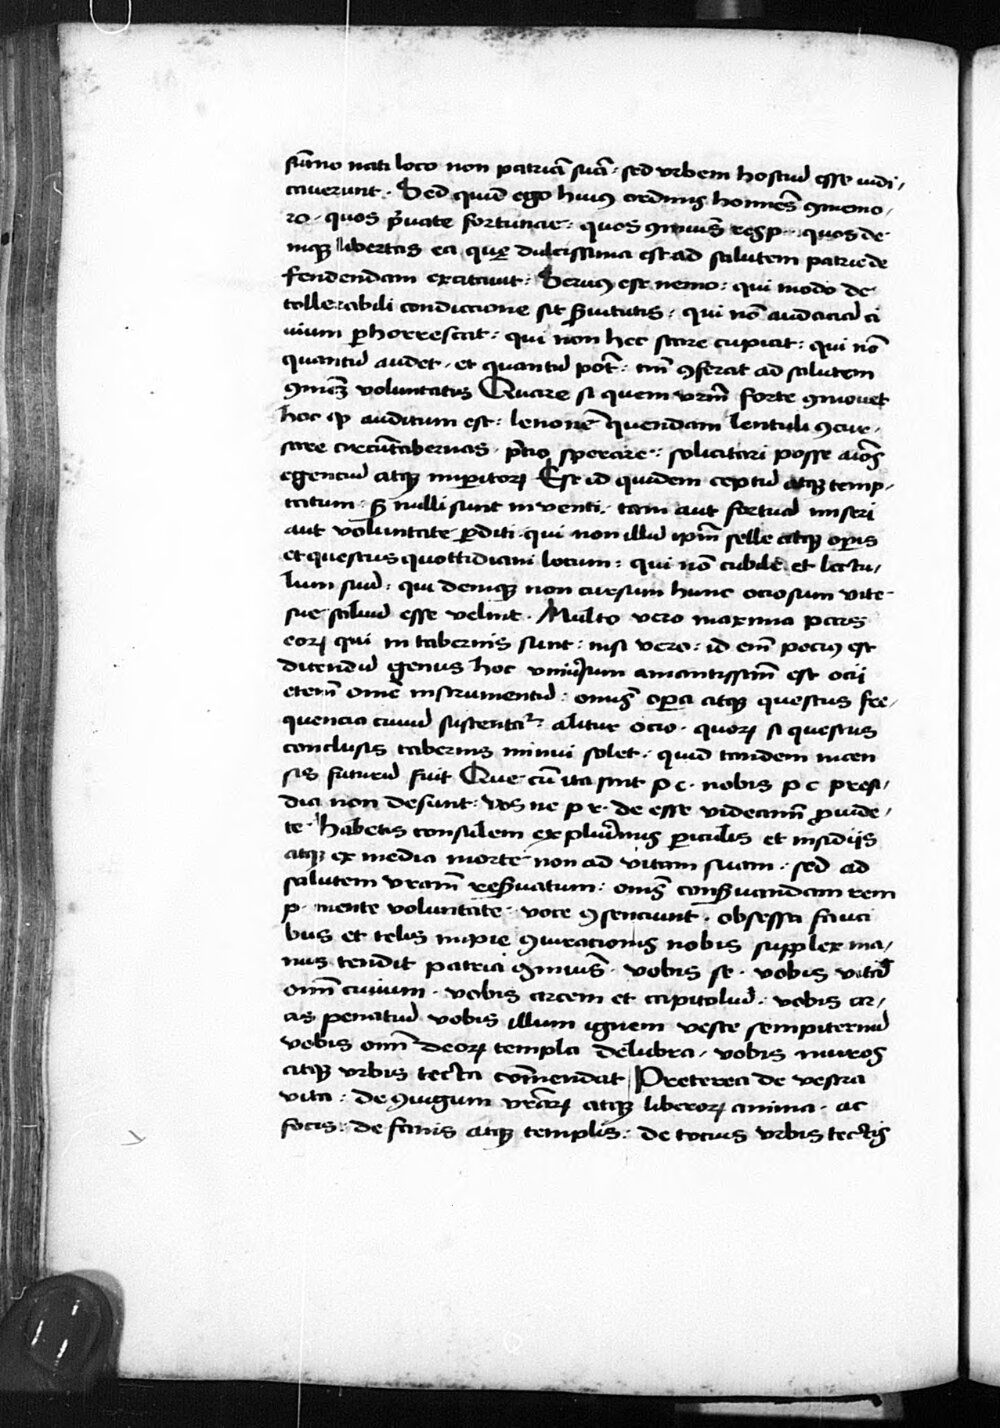 sūmo nati loco non patriā suā · sed vrbem hostiū esse iudi/
cauerunt · Sed quid ego huiꝰ ordinis homines ꝯmemo/
ro · quos p̄uate fortunae : quos ꝯmuīs resp · quos de
niqꝫ libertas ea que dulcissima est ad salutem patrie de
fendendam excitauit : Seruus est nemo : qui modo de
tollerabili condiccione sit ẜuitutis : qui nō audaciā ci
uium ꝑhorrescat : qui non hec stare cupiat : qui nō
quantū audet · et quantū pōt · tm̄ ꝯferat ad salutem
ꝯmunē voluntatis Quare si quem vrm̄ forte ꝯmouet
hoc qꝫ auditum est : lenonē quendam lentuli ꝯcur/
sare circū tabernas · p̄cio sperare : solicitari posse aīos
egenciū atqꝫ imperitoꝝ Est id quidem ceptū atqꝫ temp/
tatum · ẜ nulli sunt inuenti · tam aut fortuna miseri
aut voluntate ꝑditi · qui non illud ipm̄ selle atqꝫ oꝑis
et questus quottidiani locum : qui nō cubile et lectu/
lum suū : qui deniqꝫ non cursum hunc ociosum vite
sue saluū esse velint · Multo vero maxima pars
eoꝝ qui in tabernis sunt : nisi vero : id em̄ pociꝰ est
dicendū genus hoc vniuersum amantissim̄ est ocii
etem̄ omē instrumentū : omnis oꝑa atqꝫ questus fre/
quencia ciuiū sustentatᷣ alitur ocio · quoꝝ si questus
conclusis tabernis minui solet · quid tandem incen
sis futurū fuit Que cū ita sint p c · nobis p c presi/
dia non desunt : vos ne p r · de esse videamī ꝓuide/
te · Habetis consulem ex plurimis ꝑiculis et insidiis
atqꝫ ex media morte non ad vitam suam · sed ad
salutem vram̄ reẜuatum : omīs conẜuandam rem
p · mente voluntate · voce ꝯsenciunt · obsessa fauci
bus et telis impie ꝯiurationis nobis supplex ma/
nus tendit patria ꝯmunis · vobis se · vobis vitā
omī ciuium · vobis arcem et capitoliū · vobis ar/
as penatū vobis illum ignem veste sempiternū
vobis omī deoꝝ templa delubra / vobis muros
atqꝫ vrbis tecta cōmendat Preterea de vestra
vita : de ꝯiugum vrāꝝ atqꝫ liberoꝝ anima · ac
focis : de fanis atqꝫ templis : de tocius vrbis tectis